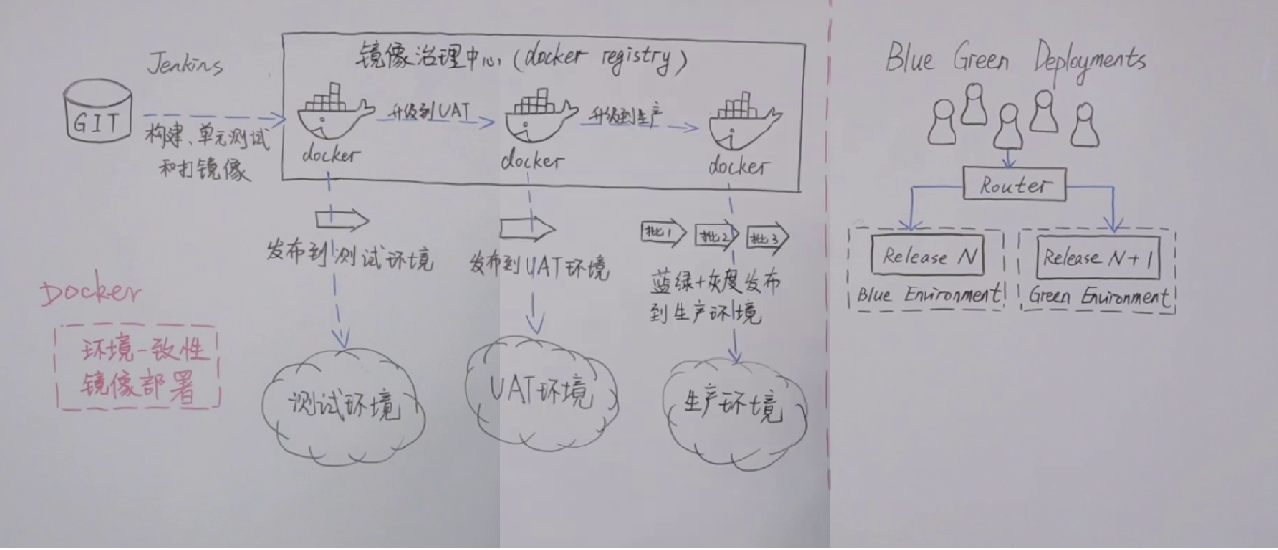 Jenkins
GIT
构建、单元测试
和打镜像
镜像治理中心(docker registry)
docker
升级到UAT
docker
升级到生产
docker
发布到测试环境
发布到UAT环境
批1
批2
批3
蓝绿+灰度发布
到生产环境
测试环境
UAT环境
生产环境
Docker
环境一致性
镜像部署
Blue Green Deployments
Router
Release N
Blue Environment
Release N+1
Green Environment